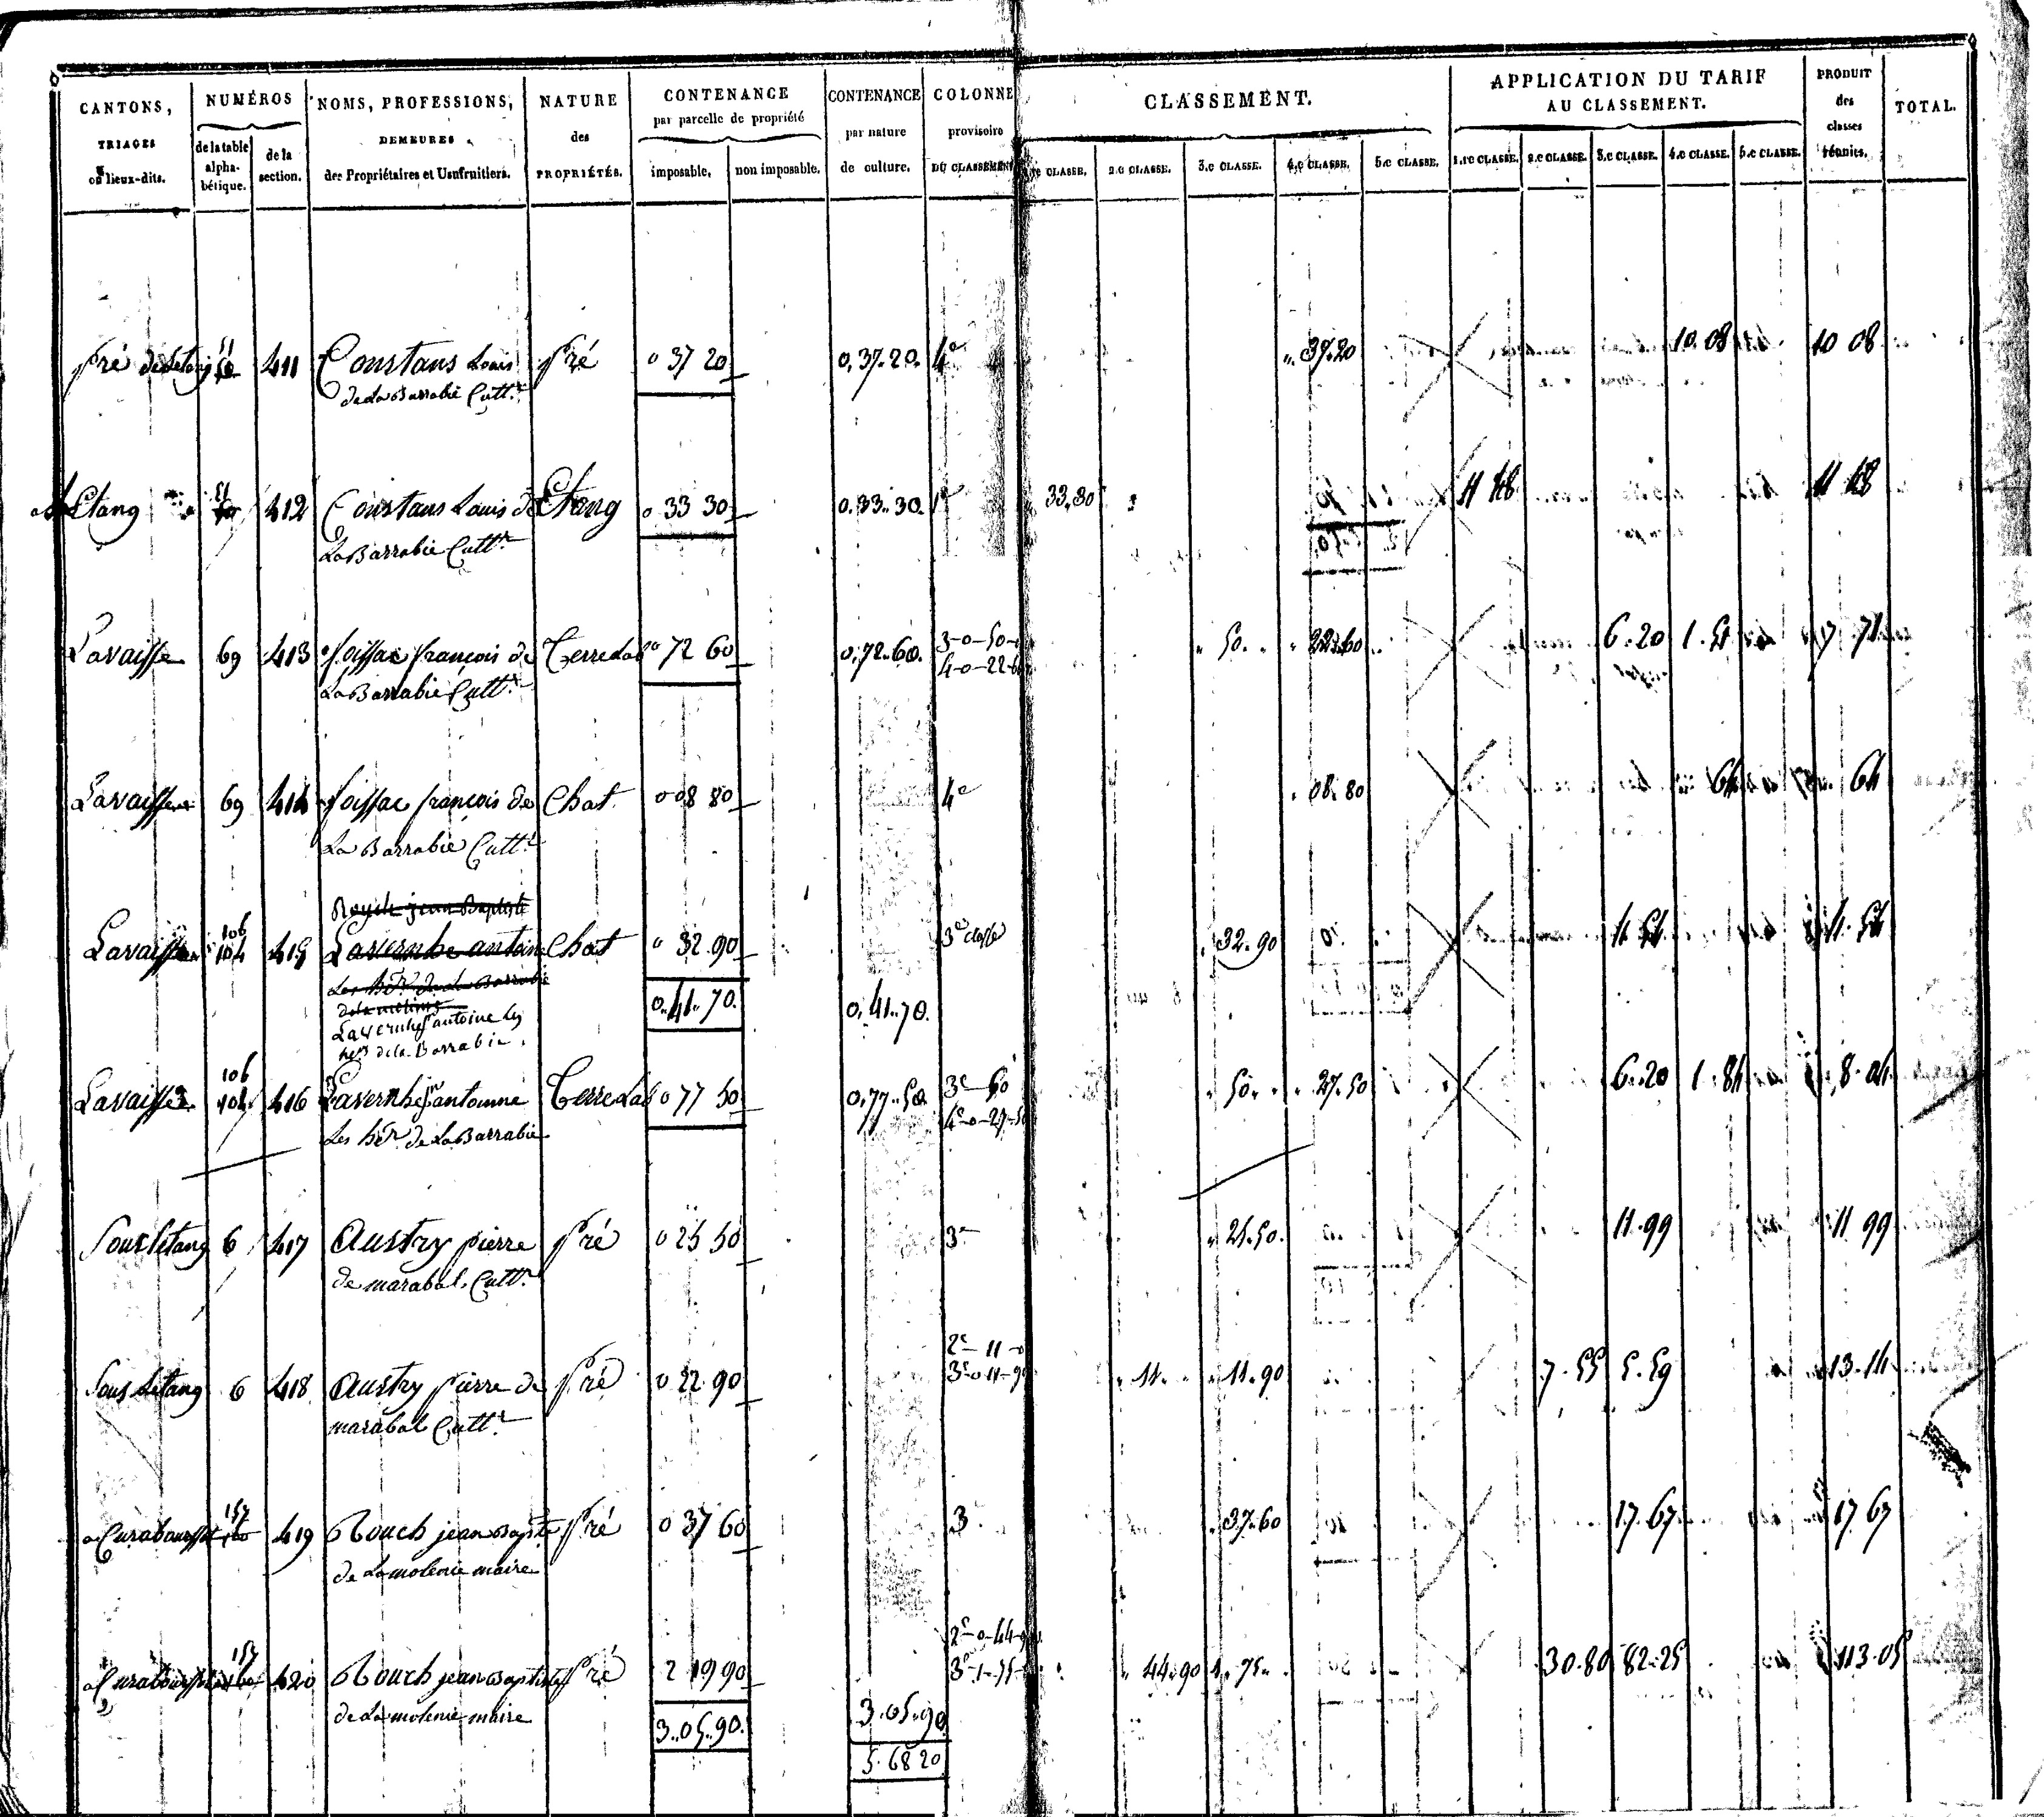 CANTONS, TRIAGES ou lieux-dits.
NUMÉROS
de la table alphabétique.
de la section.
NOMS, PROFESSIONS, DEMEURES des Propriétaires et Usufruitiers.
NATURE des PROPRIÉTÉS.
CONTENANCE par parcelle de propriété
imposable.
non imposable.
CONTENANCE par nature de culture.
COLONNE provisoire DU CLASSEMENT
CLASSEMENT.
1.re CLASSE.
2.e CLASSE.
3.e CLASSE.
4.e CLASSE.
5.e CLASSE.
APPLICATION DU TARIF AU CLASSEMENT.
1.re CLASSE.
2.e CLASSE.
3.e CLASSE.
4.e CLASSE.
5.e CLASSE.
PRODUIT des classes réunies.
TOTAL.
Pré de Letang 51 411 Constans Louis Pré 0 37 20 0,37.20. 4e 37.20 10.08 10 08
de La Barrabie Cultr
Etang 51 412 Constans Louis de Etang 0 33 30 0.33.30. 1e 33.30 11 48 11 48
La Barrabie Cultr
Lavaisse 69 413 foissac françois de Terre Lab 0 72 60 0.72.60. 3-0-50 50. 22.60 6.20 1.51 7 71
4-0-22-60
La Barrabie Cultr
Lavaisse 69 414 foissac françois de Chat. 0 08 80 4e 08.80 64 64
La Barrabie Cultr
jean Baptiste
106
Lavaisse 104 415 Lavernhe antoine Chat 0 32.90 3e classe 32.90 11.51
Les hér de La Barrabie
Lavernhe antoine les
0.41.70. 0.41.70.
hers de la Barrabie.
106
Lavaisse 104 416 Lavernhe antoinne Terre Lab 0 77 50 0.77.50. 3e-50 50. 27.50 6.20 1.84 8.04
4e-0-27-50
Les hér de La Barrabie
Sous Letang 6 417 Austry pierre Pré 0 25 50 3e 25.50. 11.99 11 99
de marabal Cultr
2e-11-0
Sous Letang 6 418 Austry Pierre de Pré 0 22.90 3e-0-11-90 11. 11.90 7.55 5.59 13.14
marabal Cultr
157
419 Rouch jean Bapte Pré 0 37 60 3. 37.60 17.67 17 67
de Lamolenie maire
157 2e-0-44-90
420 Rouch jean Baptiste Pré 2 19 90 3e-1-75 44.90 1.75. 30.80 82.25 113.05
de La molenie maire
3.05.90. 3.05.90
5.68 20